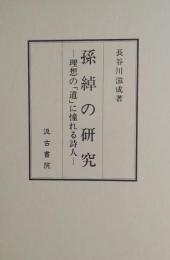 長谷川滋成著
孫綽の研究
―理想の「道」に憧れる詩人―
汲古書院